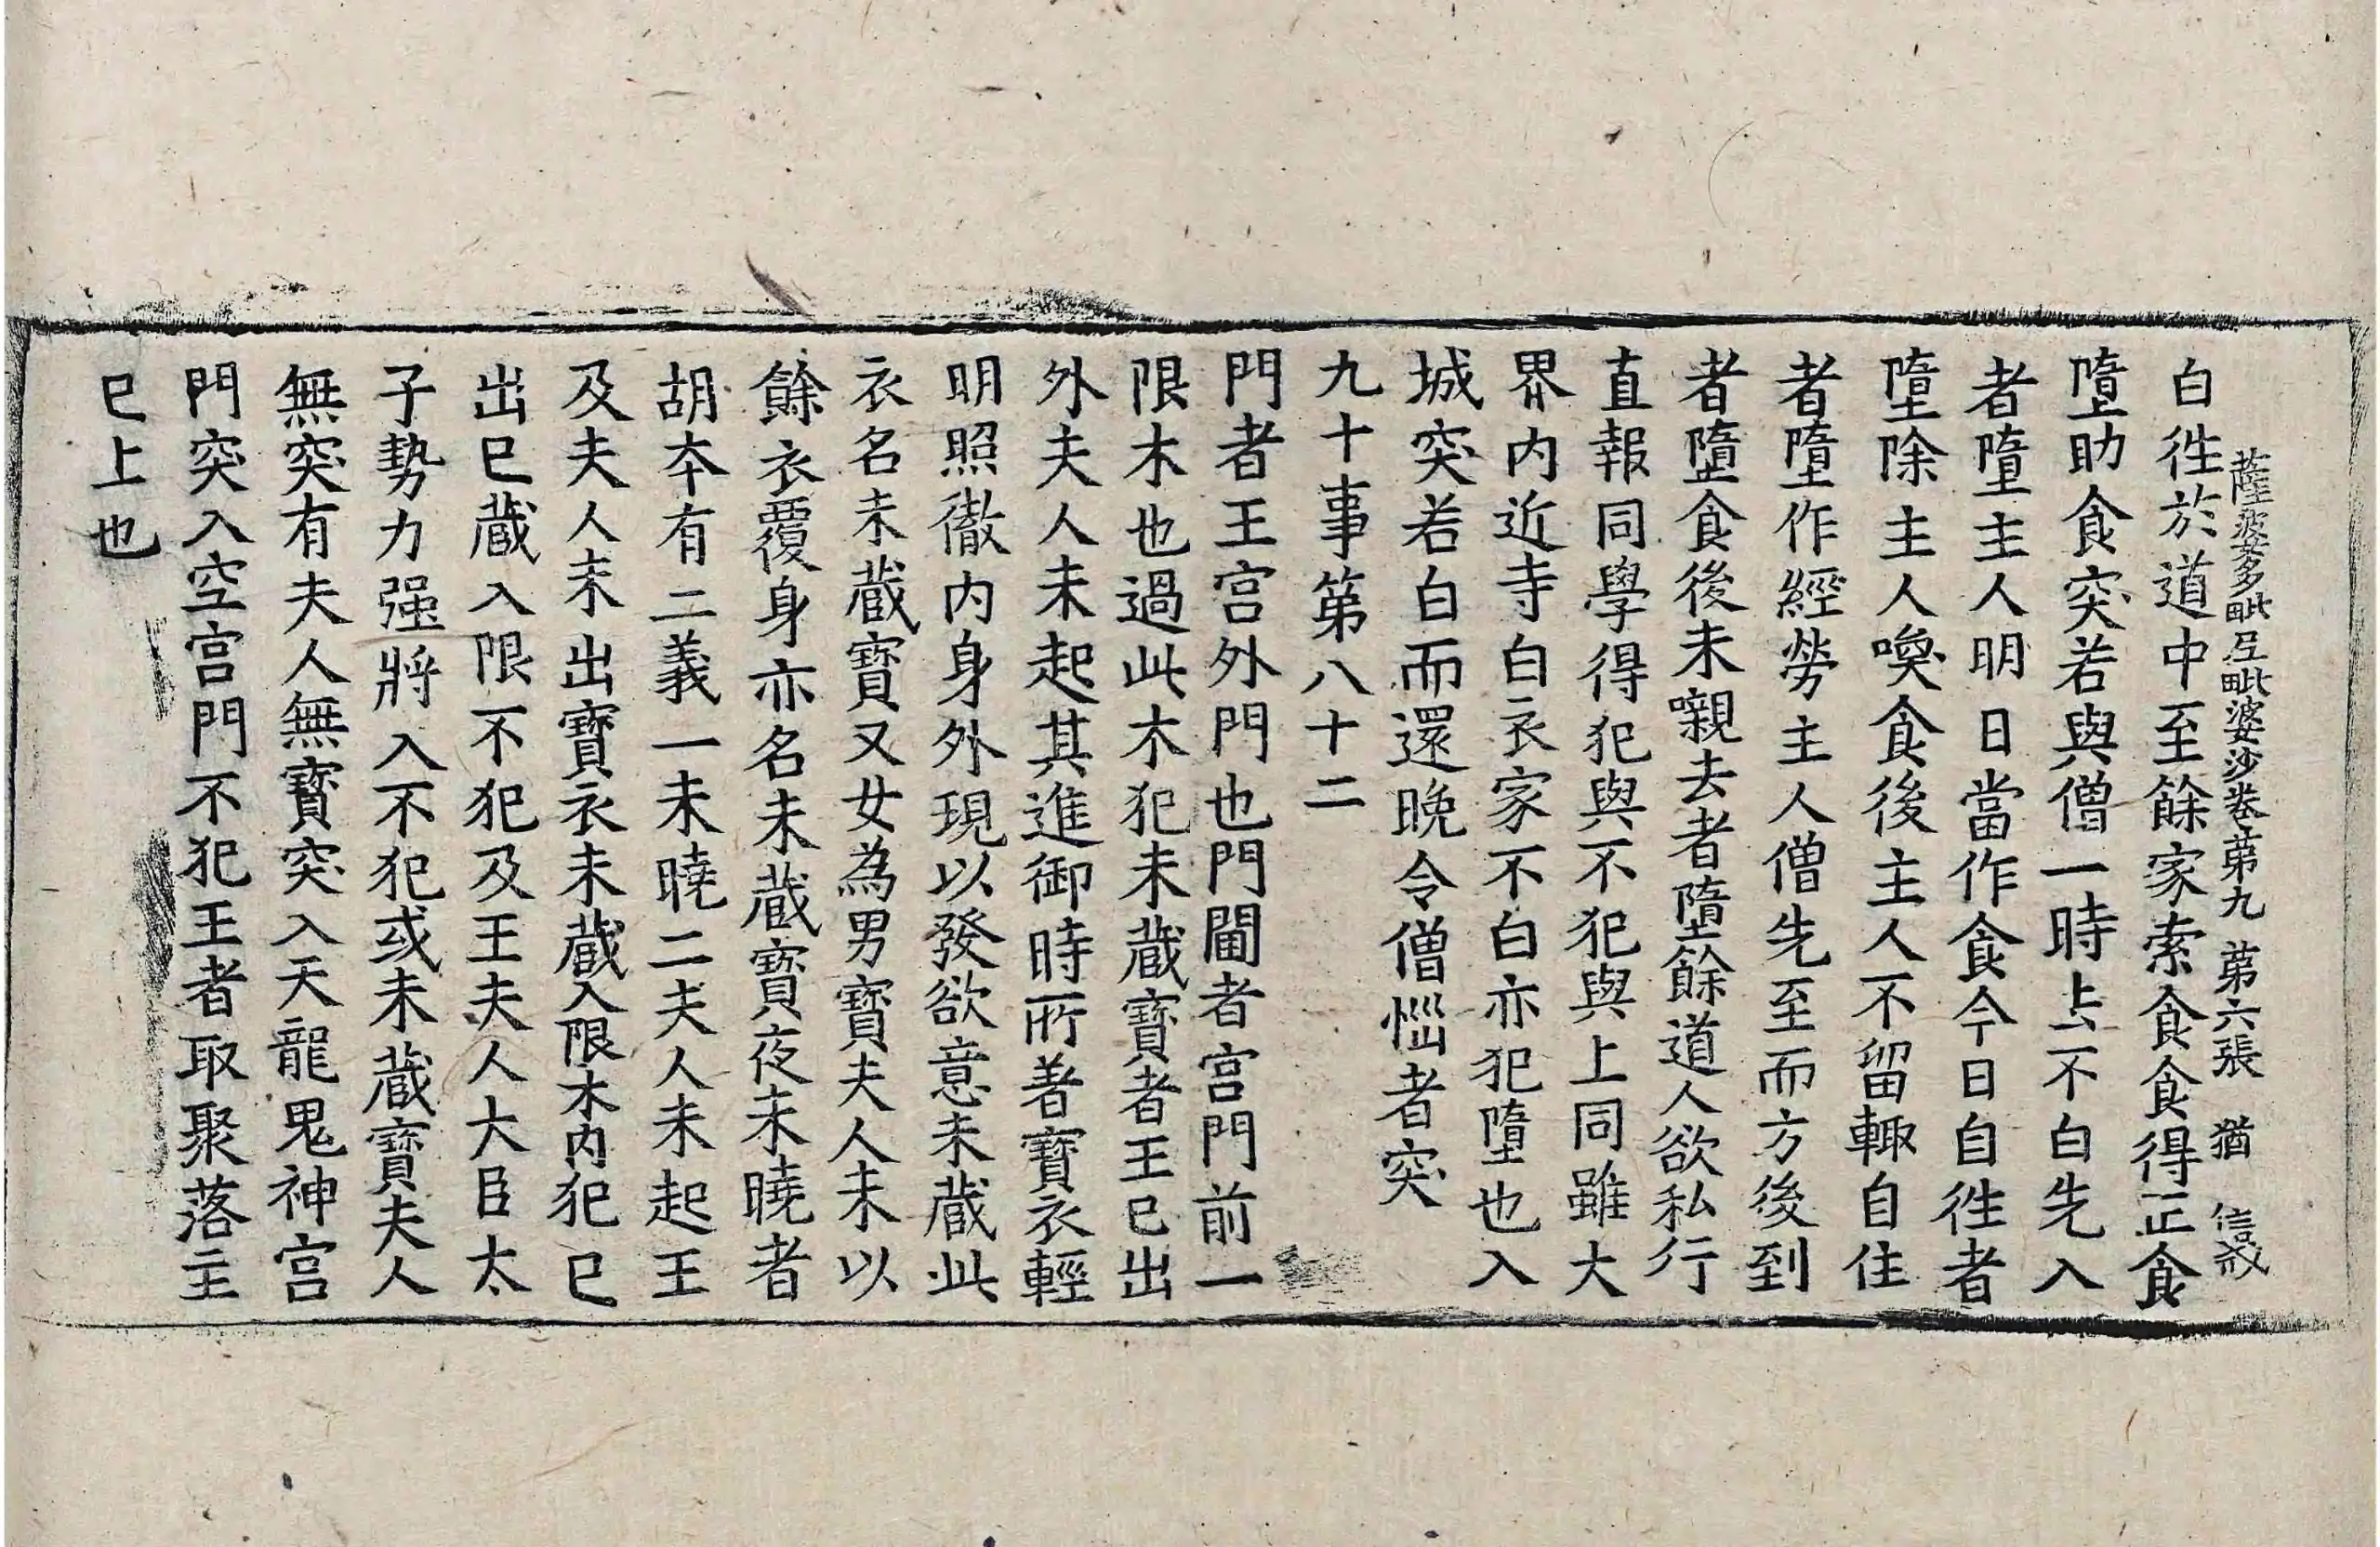 薩婆多毗尼毗婆沙卷第九 第六張 猶 信戒
白徃於道中至餘家索食食得正食
墮助食突若與僧一時上去不白先入
者墮主人明日當作食今日自徃者
墮除主人喚食後主人不留輙自住
者墮作經勞主人僧先至而方後到
者墮食後未嚫去者墮餘道人欲私行
直報同學得犯與不犯與上同雖大
界内近寺白衣家不白亦犯墮也入
城突若白而還晚令僧惱者突
九十事第八十二
門者王宫外門也門閫者宫門前一
限木也過此木犯未蔵寳者王已出
外夫人未起其進御時所著寳衣輕
明照徹内身外現以發欲意未蔵此
衣名未蔵寳又女為男寳夫人未以
餘衣覆身亦名未蔵寳夜未曉者
胡夲有二義一未曉二夫人未起王
及夫人未出寳衣未蔵入限木内犯已
出已蔵入限不犯及王夫人大臣太
子勢力强將入不犯或未蔵寳夫人
無突有夫人無寳突入天龍鬼神宫
門突入空宫門不犯王者取聚落主
已上也